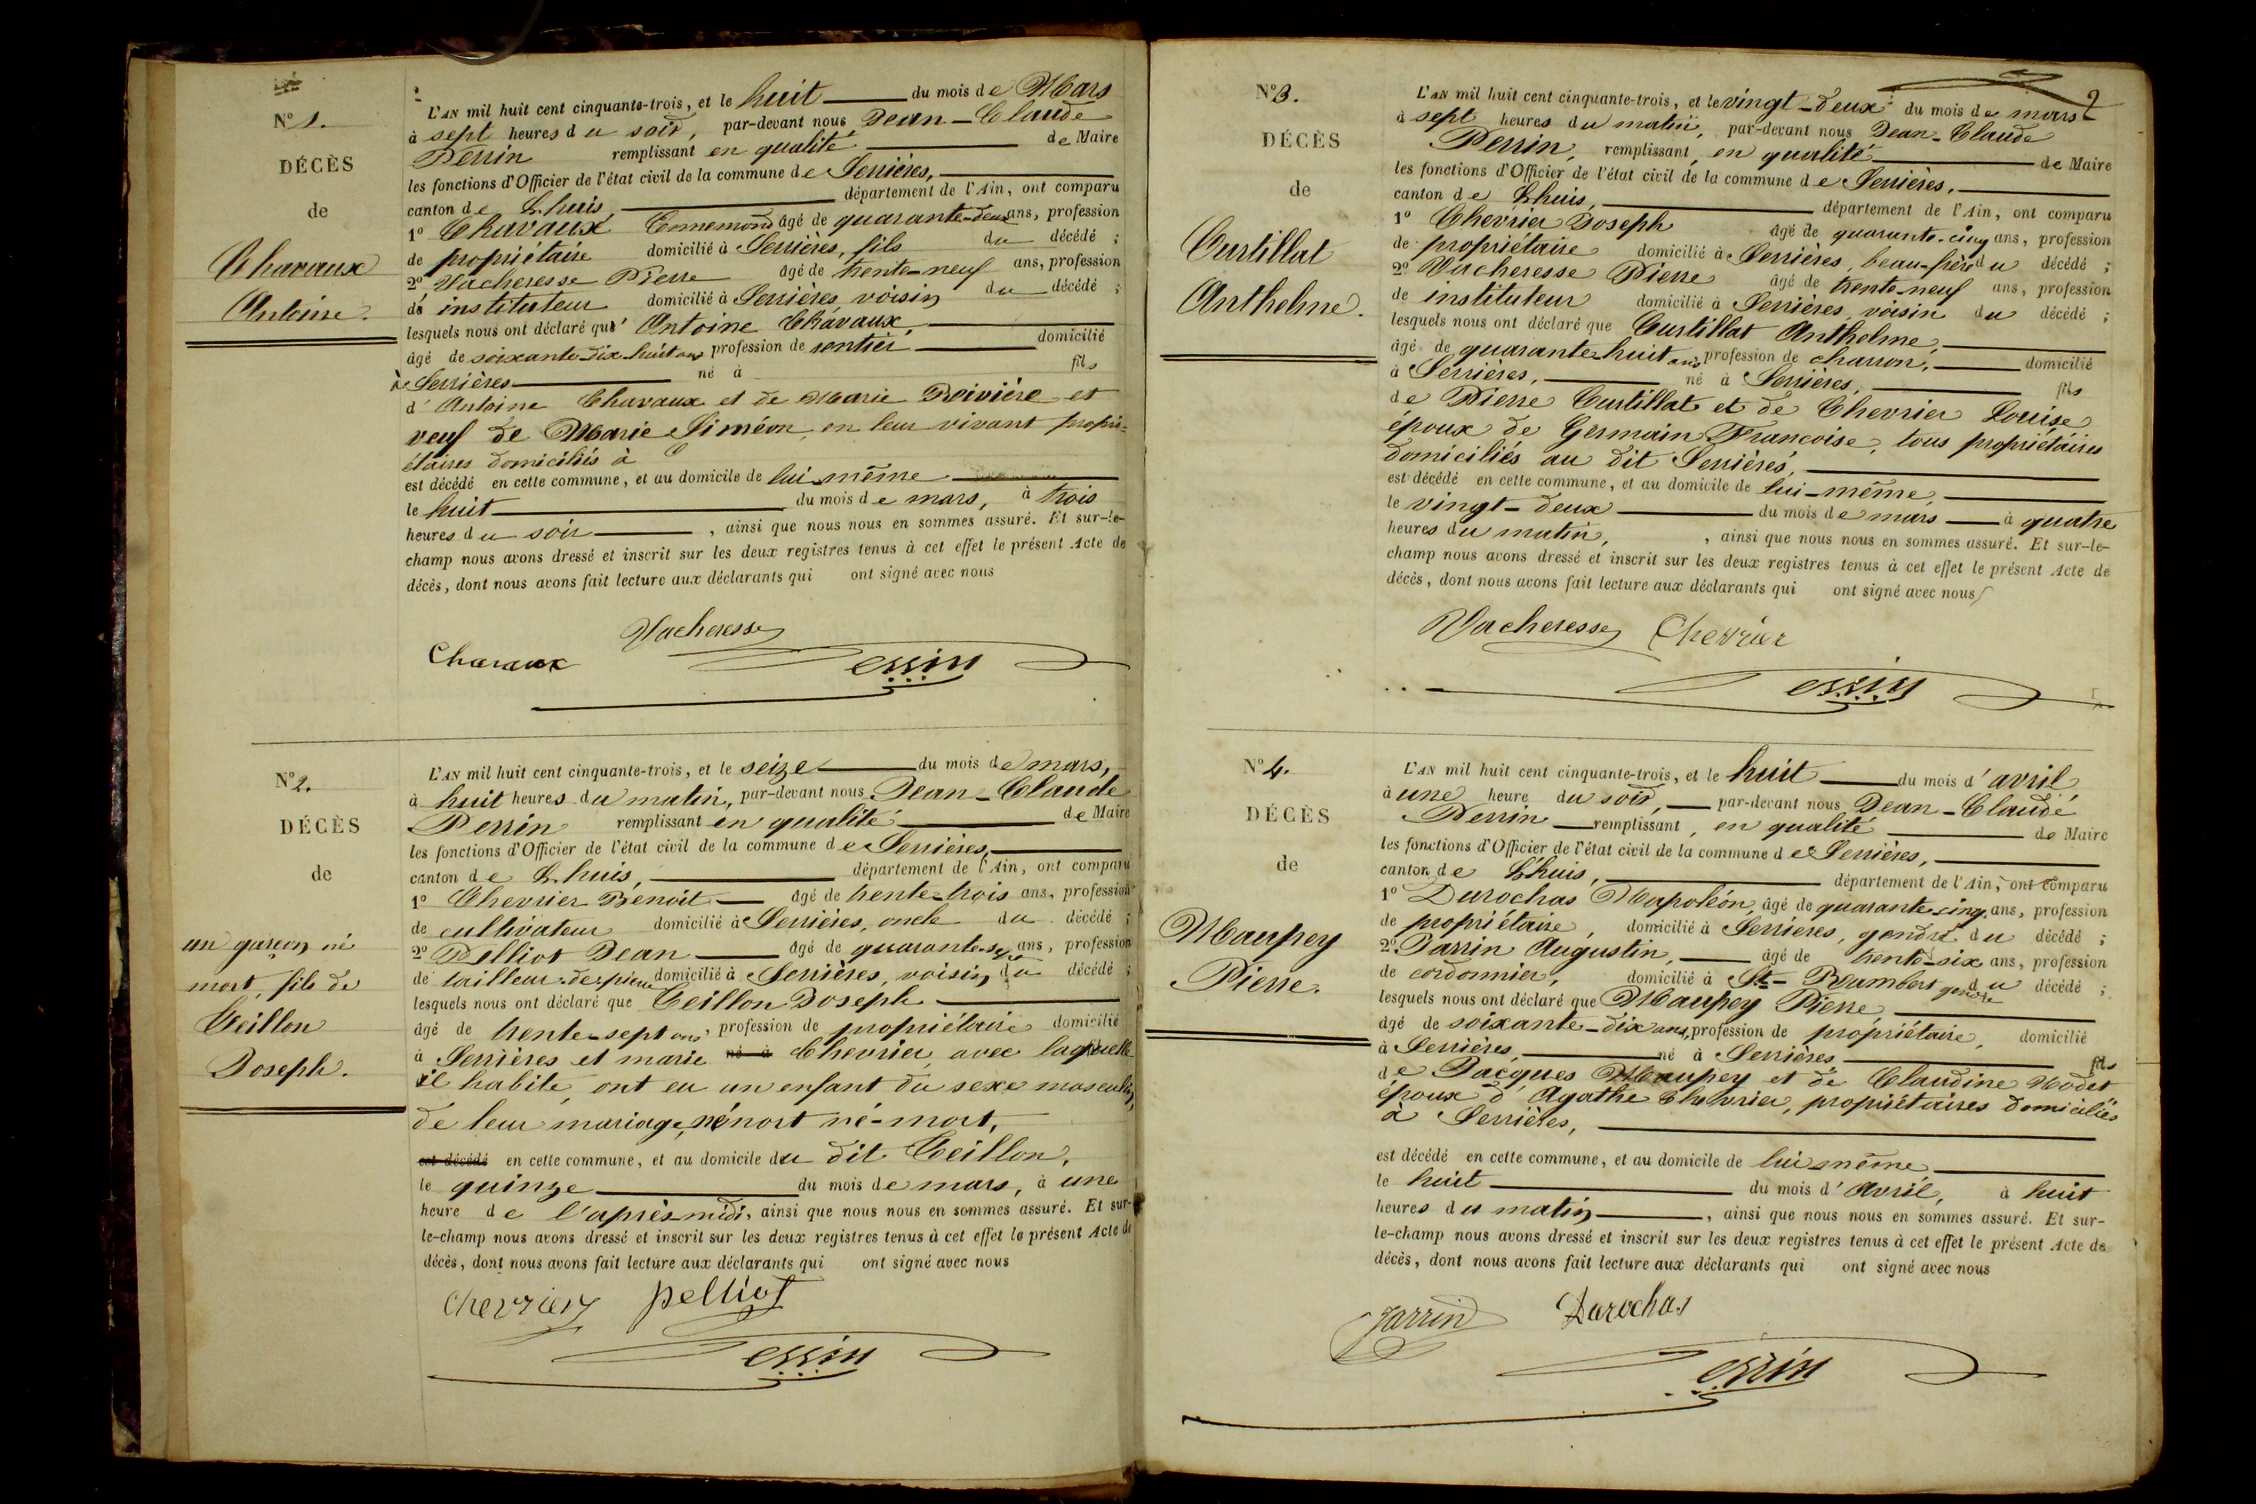 N° 1.
DÉCÈS
de
Charaux
Antoine.
L'AN mil huit cent cinquante-trois, et le huit du mois de Mars
à sept heures du soir, par-devant nous Jean-Claude
Perrin remplissant en qualité de Maire
les fonctions d'Officier de l'état civil de la commune de Serrières,
canton de Lhuis département de l'Ain, ont comparu
1° Charaux âgé de quarante-deux ans, profession
de propriétaire domicilié à Serrières, fils du décédé ;
2° Vacheresse Pierre âgé de trente-neuf ans, profession
de instituteur domicilié à Serrières, voisin du décédé ;
lesquels nous ont déclaré que Antoine Charaux,
âgé de soixante-dix-huit ans profession de rentier domicilié
à Serrières né à fils
d'Antoine Charaux et de Marie Rivière et
veuf de Marie Siméon, en leur vivant propri-
étaires domiciliés à
est décédé en cette commune, et au domicile de lui-même
le huit du mois de mars, à trois
heures du soir, ainsi que nous nous en sommes assuré. Et sur-le-
champ nous avons dressé et inscrit sur les deux registres tenus à cet effet le présent Acte de
décès, dont nous avons fait lecture aux déclarants qui ont signé avec nous
Vacheresse
Charaux Perrin
N° 2.
DÉCÈS
de
un garçon né
mort, fils de
Teillon
Joseph.
L'AN mil huit cent cinquante-trois, et le seize du mois de mars,
à huit heures du matin, par-devant nous Jean-Claude
Perrin remplissant en qualité de Maire
les fonctions d'Officier de l'état civil de la commune de Serrières,
canton de Lhuis, département de l'Ain, ont comparu
1° Chevrier Benoît âgé de trente-trois ans, profession
de cultivateur domicilié à Serrières, oncle du décédé ;
2° Pelliot Jean âgé de quarante-sept ans, profession
de tailleur de pierre domicilié à Serrières, voisin du décédé ;
lesquels nous ont déclaré que Teillon Joseph
âgé de trente-sept ans profession de propriétaire domicilié
à Serrières et marie né à Chevrier, avec laquelle
il habite, ont eu un enfant du sexe masculin,
de leur mariage, né-mort,
est décédé en cette commune, et au domicile du dit Teillon,
le quinze du mois de mars, à une
heure de l'après midi, ainsi que nous nous en sommes assuré. Et sur-
le-champ nous avons dressé et inscrit sur les deux registres tenus à cet effet le présent Acte de
décès, dont nous avons fait lecture aux déclarants qui ont signé avec nous
Chevrier Pelliot
Perrin
2
N° 3.
DÉCÈS
de
Curtillat
Anthelme.
L'AN mil huit cent cinquante-trois, et le vingt-deux du mois de mars
à sept heures du matin, par-devant nous Jean-Claude
Perrin, remplissant, en qualité de Maire
les fonctions d'Officier de l'état civil de la commune de Serrières,
canton de Lhuis, département de l'Ain, ont comparu
1° Chevrier Joseph âgé de quarante-cinq ans, profession
de propriétaire domicilié à Serrières, beau-frère du décédé ;
2° Vacheresse Pierre âgé de trente-neuf ans, profession
de instituteur domicilié à Serrières, voisin du décédé ;
lesquels nous ont déclaré que Curtillat Anthelme,
âgé de quarante-huit ans, profession de charron, domicilié
à Serrières, né à Serrières, fils
de Pierre Curtillat et de Chevrier Louise
époux de Germain Françoise, tous propriétaires
domiciliés au dit Serrières,
est décédé en cette commune, et au domicile de lui-même,
le vingt-deux du mois de mars à quatre
heures du matin, ainsi que nous nous en sommes assuré. Et sur-le-
champ nous avons dressé et inscrit sur les deux registres tenus à cet effet le présent Acte de
décès, dont nous avons fait lecture aux déclarants qui ont signé avec nous
Vacheresse Chevrier
Perrin
N° 4.
DÉCÈS
de
Maupey
Pierre.
L'AN mil huit cent cinquante-trois, et le huit du mois d'avril
à une heure du soir, par-devant nous Jean-Claude
Perrin remplissant, en qualité de Maire
les fonctions d'Officier de l'état civil de la commune de Serrières,
canton de Lhuis, département de l'Ain, ont comparu
1° Durochas Napoléon, âgé de quarante-cinq ans, profession
de propriétaire, domicilié à Serrières, gendre du décédé ;
2° Jarrin Augustin, âgé de trente-six ans, profession
de cordonnier, domicilié à St-Rambert gendre du décédé ;
lesquels nous ont déclaré que Maupey Pierre
âgé de soixante-dix ans, profession de propriétaire, domicilié
à Serrières, né à Serrières fils
de Jacques Maupey et de Claudine Nodet
époux d'Agathe Chevrier, propriétaires domiciliés
à Serrières,
est décédé en cette commune, et au domicile de lui même
le huit du mois d'Avril, à huit
heures du matin, ainsi que nous nous en sommes assuré. Et sur-
le-champ nous avons dressé et inscrit sur les deux registres tenus à cet effet le présent Acte de
décès, dont nous avons fait lecture aux déclarants qui ont signé avec nous
Jarrin Durochas
Perrin